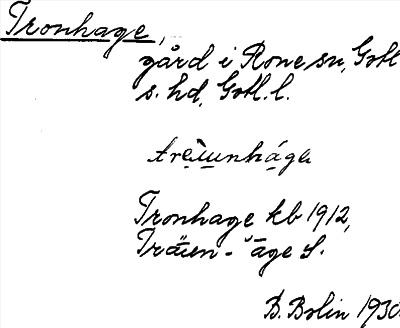 Tronhage,
gård i Rone sn, Gotl
s. hd, Gotl. l.
träunhága
Tronhage kb 1912,
Träuen-äge S.
B. Bolin 1930.